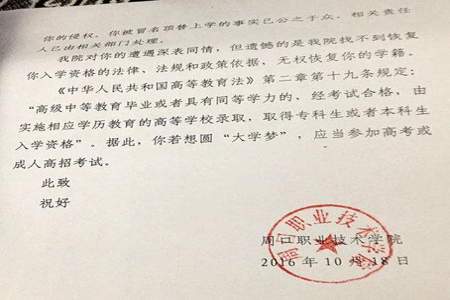 你的侵权，你被冒名顶替上学的事实已公之于众，相关责任
人已由相关部门处理。
我院对你的遭遇深表同情，但遗憾的是我院找不到恢复
你入学资格的法律、法规和政策依据，无权恢复你的学籍。
《中华人民共和国高等教育法》第二章第十九条规定：
“高级中等教育毕业或者具有同等学力的，经考试合格，由
实施相应学历教育的高等学校录取，取得专科生或者本科生
入学资格”。据此，你若想圆“大学梦”，应当参加高考或
成人高招考试。
此致
祝好
周口职业技术学院
2016 年 10 月 18 日
周口职业技术学院